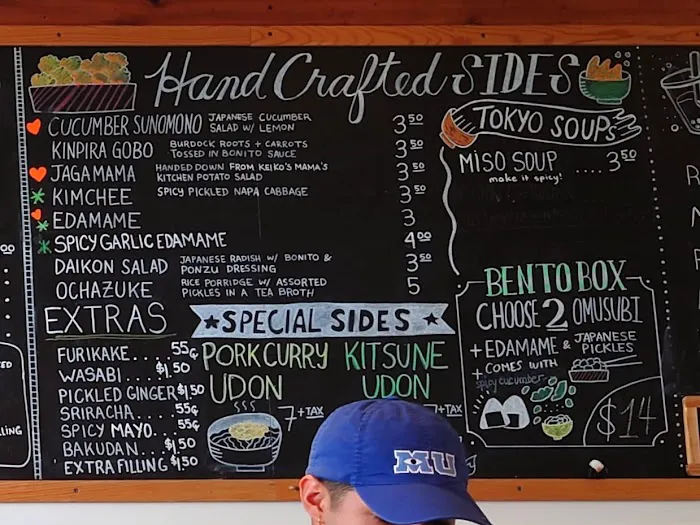 Hand Crafted SIDES
CUCUMBER SUNOMONO JAPANESE CUCUMBER SALAD W/ LEMON 3 50
KINPIRA GOBO BURDOCK ROOTS + CARROTS TOSSED IN BONITO SAUCE 3 50
JAGAMAMA HANDED DOWN FROM KEIKO'S MAMA'S KITCHEN POTATO SALAD 3 50
KIMCHEE SPICY PICKLED NAPA CABBAGE 3 50
EDAMAME 3
SPICY GARLIC EDAMAME 4 00
DAIKON SALAD JAPANESE RADISH W/ BONITO & PONZU DRESSING 3 50
OCHAZUKE RICE PORRIDGE W/ ASSORTED PICKLES IN A TEA BROTH 5
TOKYO SOUPS
MISO SOUP .... 3 50
make it spicy!
EXTRAS
FURIKAKE.... 55¢
WASABI.... $1.50
PICKLED GINGER $1.50
SRIRACHA.... 55¢
SPICY MAYO.. 55¢
BAKUDAN.... $1.50
EXTRA FILLING $1.50
★SPECIAL SIDES★
PORK CURRY
UDON
7 +TAX
KITSUNE
UDON
7 +TAX
BENTO BOX
CHOOSE 2 OMUSUBI
+ EDAMAME & JAPANESE PICKLES
+ COMES WITH
spicy cucumber
$14
MU